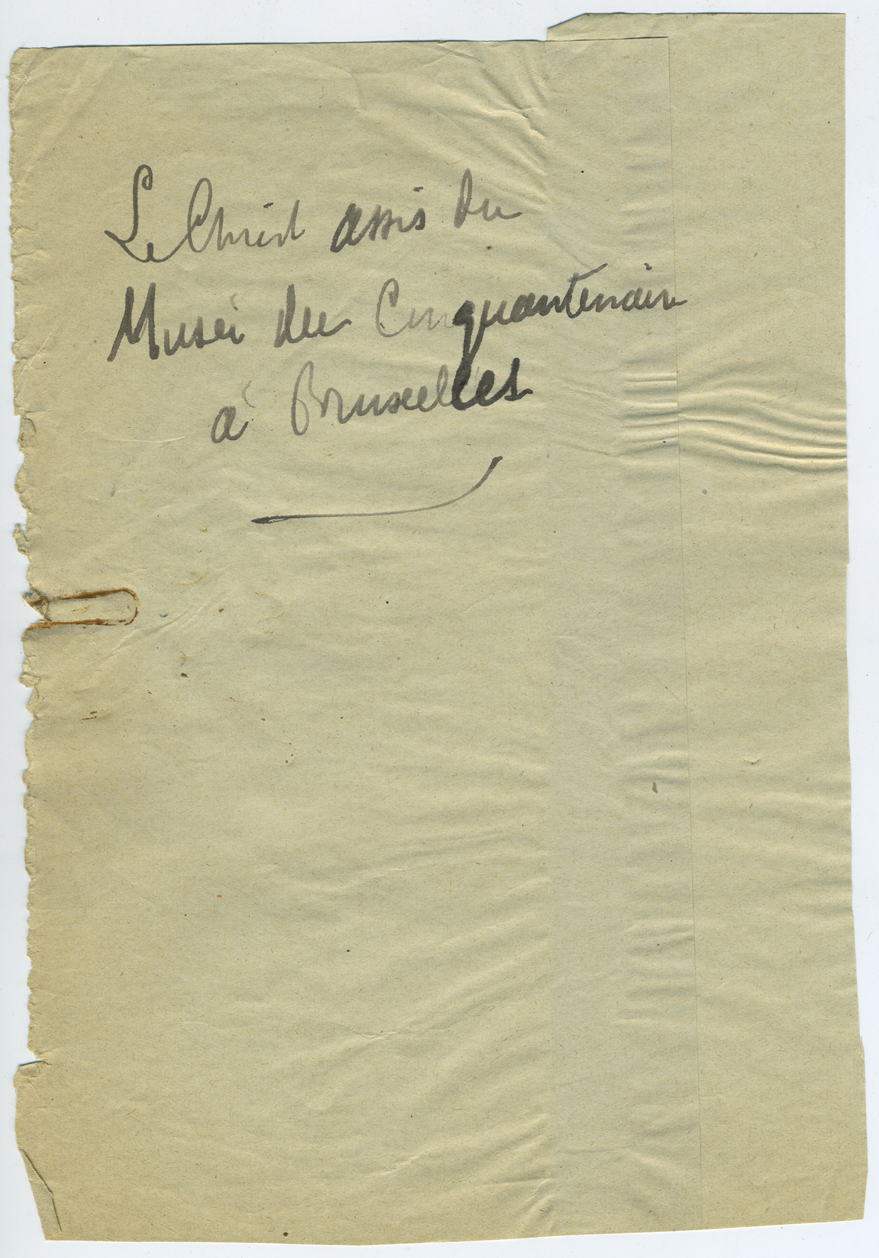 Le Christ assis du
Musée du Cinquantenaire
à Bruxelles